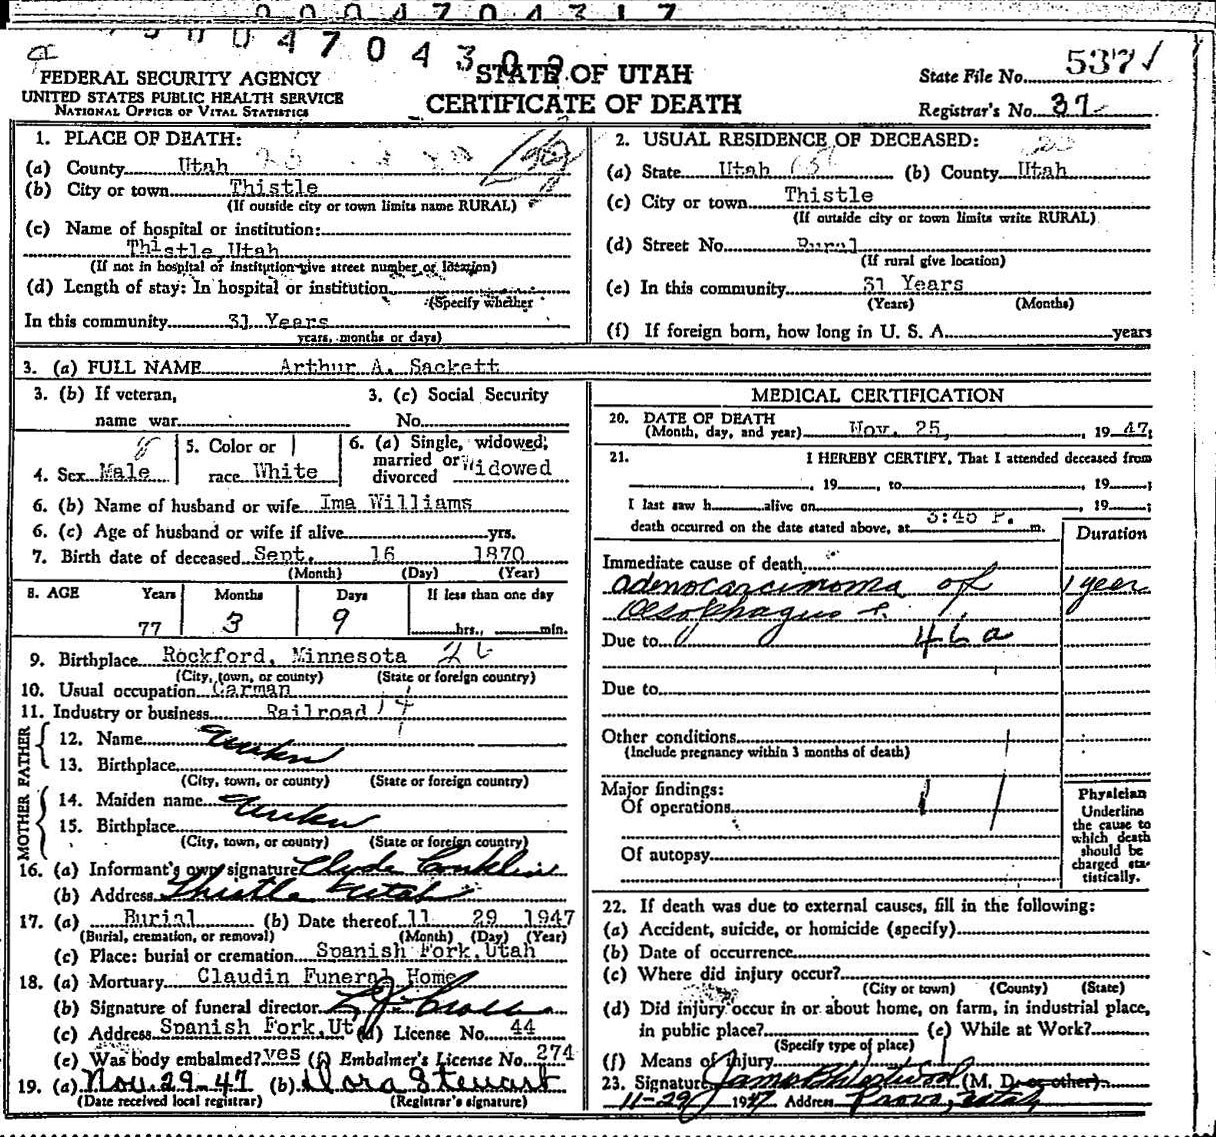 0 0 0 4 7 0 4 3 1 7
0 0 4 7 0 4 3 0
FEDERAL SECURITY AGENCY
UNITED STATES PUBLIC HEALTH SERVICE
NATIONAL OFFICE OF VITAL STATISTICS
STATE OF UTAH
CERTIFICATE OF DEATH
State File No. 537
Registrar's No. 37
1. PLACE OF DEATH:
(a) County Utah
(b) City or town Thistle
(If outside city or town limits name RURAL)
(c) Name of hospital or institution:
Thistle, Utah
(If not in hospital or institution give street number or location)
(d) Length of stay: In hospital or institution
(Specify whether
In this community 31 Years
years, months or days)
2. USUAL RESIDENCE OF DECEASED:
(a) State Utah (b) County Utah
(c) City or town Thistle
(If outside city or town limits write RURAL)
(d) Street No. Rural
(If rural give location)
(e) In this community 31 Years
(Years) (Months)
(f) If foreign born, how long in U. S. A. years
3. (a) FULL NAME Arthur A. Sackett
3. (b) If veteran,
name war
3. (c) Social Security
No.
4. Sex Male
5. Color or
race White
6. (a) Single, widowed,
married or
divorced Widowed
6. (b) Name of husband or wife Ima Williams
6. (c) Age of husband or wife if alive yrs.
7. Birth date of deceased Sept. 16 1870
(Month) (Day) (Year)
8. AGE Years Months Days If less than one day
77 3 9 hrs., min.
9. Birthplace Rockford, Minnesota 26
(City, town, or county) (State or foreign country)
10. Usual occupation Carman
11. Industry or business Railroad 14
FATHER
12. Name Unkn
13. Birthplace
(City, town, or county) (State or foreign country)
MOTHER
14. Maiden name Unkn
15. Birthplace
(City, town, or county) (State or foreign country)
16. (a) Informant's own signature Clyde Conklin
(b) Address Thistle Utah
17. (a) Burial (b) Date thereof 11 29 1947
(Burial, cremation, or removal) (Month) (Day) (Year)
(c) Place: burial or cremation Spanish Fork, Utah
18. (a) Mortuary Claudin Funeral Home
(b) Signature of funeral director
(c) Address Spanish Fork, Ut (d) License No. 44
(e) Was body embalmed? yes (f) Embalmer's License No. 274
19. (a) Nov. 29-47 (b) Dora Stewart
(Date received local registrar) (Registrar's signature)
MEDICAL CERTIFICATION
20. DATE OF DEATH
(Month, day, and year) Nov. 25, , 19 47;
21. I HEREBY CERTIFY, That I attended deceased from
, 19 , to , 19 ;
I last saw h alive on , 19 ;
death occurred on the date stated above, at 3:45 P. m.
Duration
Immediate cause of death
adenocarcinoma of 1 year
Oesophagus
Due to 46a
Due to
Other conditions
(Include pregnancy within 3 months of death)
Major findings:
Of operations
Of autopsy
Physician
Underline
the cause to
which death
should be
charged sta-
tistically.
22. If death was due to external causes, fill in the following:
(a) Accident, suicide, or homicide (specify)
(b) Date of occurrence
(c) Where did injury occur?
(City or town) (County) (State)
(d) Did injury occur in or about home, on farm, in industrial place,
in public place? (e) While at Work?
(Specify type of place)
(f) Means of Injury
23. Signature (M. D. or other)
11-29 1947 Address Provo, Utah